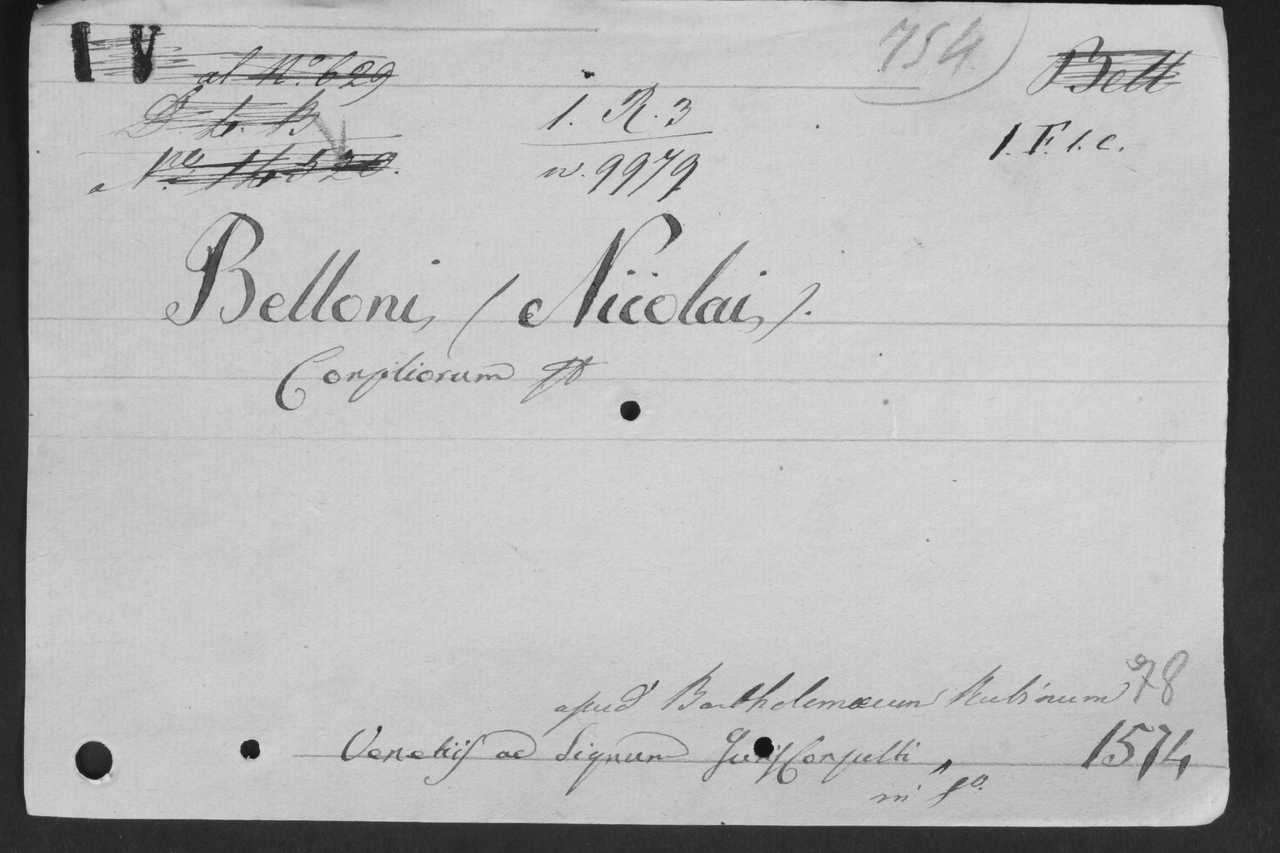 I V al N.º 629
754
Bell
D. b. B
1. R. 3
1. F. 1. c.
n. 9979
Belloni, (Nicolai).
Consiliorum
apud Bartholomæum Rubinum 78
Venetiis ad Signum JurisConsulti 1574
in fº.